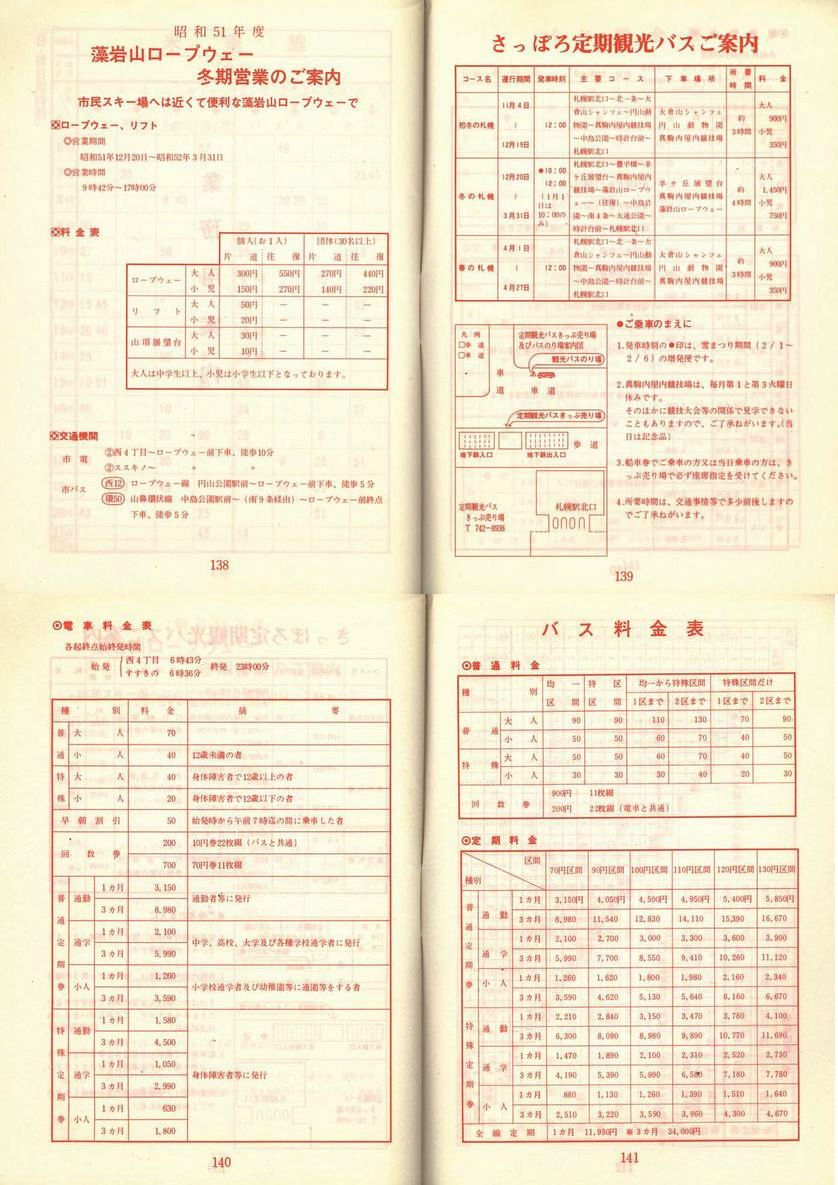 昭和51年度
藻岩山ロープウェー
冬期営業のご案内
市民スキー場へは近くて便利な藻岩山ロープウェーで
ロープウェー、リフト
◎営業期間
昭和51年12月20日〜昭和52年3月31日
◎営業時間
9時42分〜17時00分
料金表
個人(お1人) 団体(30名以上)
片道 往復 片道 往復
ロープウェー 大人 300円 550円 270円 440円
小児 150円 270円 140円 220円
リフト 大人 50円 — — —
小児 20円 — — —
山頂展望台 大人 30円 — — —
小児 10円 — — —
大人は中学生以上、小児は小学生以下となっております。
交通機関
市電 ②西4丁目〜ロープウェー前下車、徒歩10分
②ススキノ〜 〃 〃
市バス 西12 ロープウェー線 円山公園駅前〜ロープウェー前下車、徒歩5分
環50 山鼻環状線 中島公園駅前〜(南9条経由)〜ロープウェー前終点
下車、徒歩5分
138
さっぽろ定期観光バスご案内
コース名 運行期間 発車時刻 主要コース 下車場所 所要時間 料金
初冬の札幌 11月4日 〜 12月19日 12:00
札幌駅北口〜北一条〜大
倉山シャンツェ〜円山動
物園〜真駒内屋内競技場
〜中島公園〜時計台前〜
札幌駅北口
大倉山シャンツェ
円山動物園
真駒内屋内競技場
約3時間
大人 900円
小児 350円
冬の札幌 12月20日 〜 3月31日
●10:00
12:00
(1月1日は10:00のみ)
札幌駅北口〜豊平橋〜羊
ケ丘展望台〜真駒内屋内
競技場〜藻岩山ロープウ
ェー〜(往復)〜中島公
園〜南4条〜大通公園〜
時計台前〜札幌駅北口
羊ヶ丘展望台
真駒内屋内競技場
藻岩山ロープウェー
約4時間
大人 1,450円
小児 750円
春の札幌 4月1日 〜 4月27日 12:00
札幌駅北口〜北一条〜大
倉山シャンツェ〜円山動
物園〜真駒内屋内競技場
〜中島公園〜時計台前〜
札幌駅北口
大倉山シャンツェ
円山動物園
真駒内屋内競技場
約3時間
大人 900円
小児 350円
凡例
□歩道
□車道
定期観光バスきっぷ売り場
及びバスのり場案内図
観光バスのり場
車道
車道
定期観光バスきっぷ売り場
歩道
地下鉄入口 地下鉄出入口
定期観光バス
きっぷ売り場
T 742-8938
札幌駅北口
●ご乗車のまえに
1.発車時刻の●印は、雪まつり期間(2/1〜
2/6)の増発便です。
2.真駒内屋内競技場は、毎月第1と第3火曜日
休みです。
そのほかに競技大会等の関係で見学できない
こともありますので、ご了承ねがいます。(当
日は記念品)
3.船車券でご乗車の方又は当日乗車の方は、き
っぷ売り場で必ず座席指定を受けてください。
4.所要時間は、交通事情等で多少前後しますの
でご了承ねがいます。
139
◎電車料金表
各起終点始終発時間
始発 西4丁目 6時43分
すすきの 6時36分
終発 23時00分
種別 料金 摘要
普通 大人 70
小人 40 12歳未満の者
特殊 大人 40 身体障害者で12歳以上の者
小人 20 身体障害者で12歳以下の者
早朝割引 50 始発時から午前7時迄の間に乗車した者
回数券 200 10円券22枚綴(バスと共通)
700 70円券11枚綴
普通定期券 通勤 1カ月 3,150 通勤者等に発行
3カ月 8,980
通学 1カ月 2,100 中学、高校、大学及び各種学校通学者に発行
3カ月 5,990
小人 1カ月 1,260 小学校通学者及び幼稚園等に通園等をする者
3カ月 3,590
特殊定期券 通勤 1カ月 1,580 身体障害者等に発行
3カ月 4,500
通学 1カ月 1,050
3カ月 2,990
小人 1カ月 630
3カ月 1,800
140
バス料金表
◎普通料金
種別 均一区間 特殊区間 均一から特殊区間 特殊区間だけ
1区まで 2区まで 1区まで 2区まで
普通 大人 90 90 110 130 70 90
小人 50 50 60 70 40 50
特殊 大人 50 50 60 70 40 50
小人 30 30 30 40 20 30
回数券 900円 11枚綴
200円 22枚綴(電車と共通)
◎定期料金
種別 区間 70円区間 90円区間 100円区間 110円区間 120円区間 130円区間
普通定期券 通勤 1カ月 3,150円 4,050円 4,500円 4,950円 5,400円 5,850円
3カ月 8,980 11,540 12,830 14,110 15,390 16,670
通学 1カ月 2,100 2,700 3,000 3,300 3,600 3,900
3カ月 5,990 7,700 8,550 9,410 10,260 11,120
小人 1カ月 1,260 1,620 1,800 1,980 2,160 2,340
3カ月 3,590 4,620 5,130 5,640 6,160 6,670
特殊定期券 通勤 1カ月 2,210 2,840 3,150 3,470 3,780 4,100
3カ月 6,300 8,090 8,980 9,890 10,770 11,690
通学 1カ月 1,470 1,890 2,100 2,310 2,520 2,730
3カ月 4,190 5,390 5,990 7,180 7,780
小人 1カ月 880 1,130 1,260 1,390 1,510 1,640
3カ月 2,510 3,220 3,590 3,960 4,300 4,670
全線定期 1カ月 11,930円 ※3カ月 34,000円
141